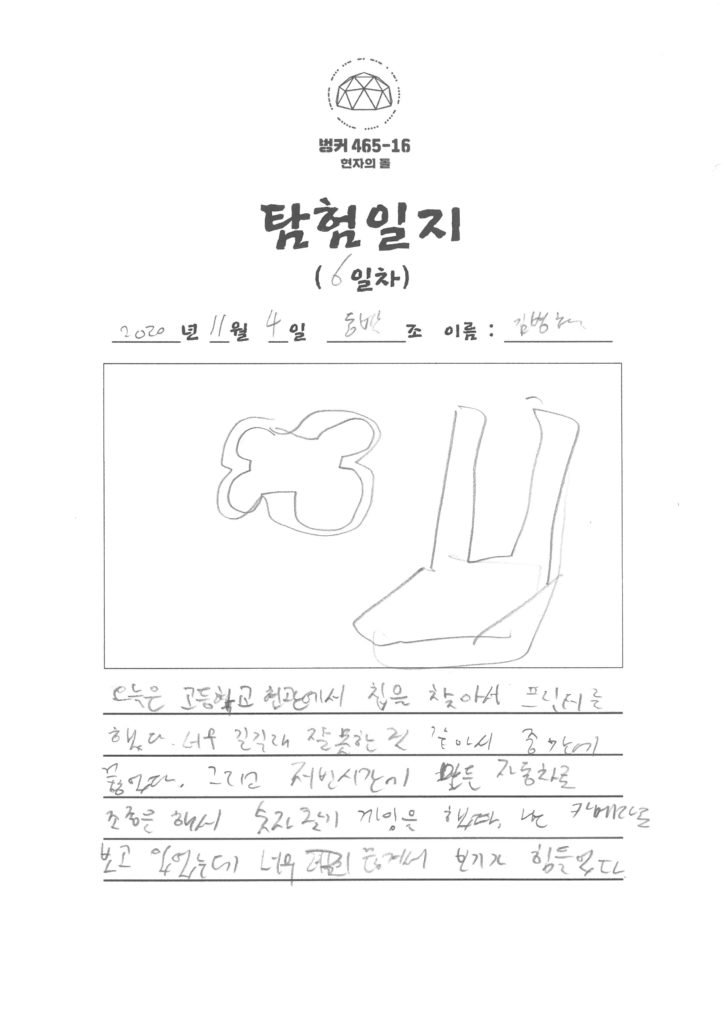 벙커 465-16
현자의 돌
탐험일지
(6일차)
2020년 11월 4일 동백조 이름 : 김병
오늘은 고등학교 현관에서 칩을 찾아서 프린터를
했다. 너무 길길래 잘못한 것 같아서 중간에
끊었다. 그리고 저번시간에 만든 자동차로
조종을 해서 숫자 찾기 게임을 했다. 난 카메라를
보고 있었는데 너무 끊겨서 보기가 힘들었다